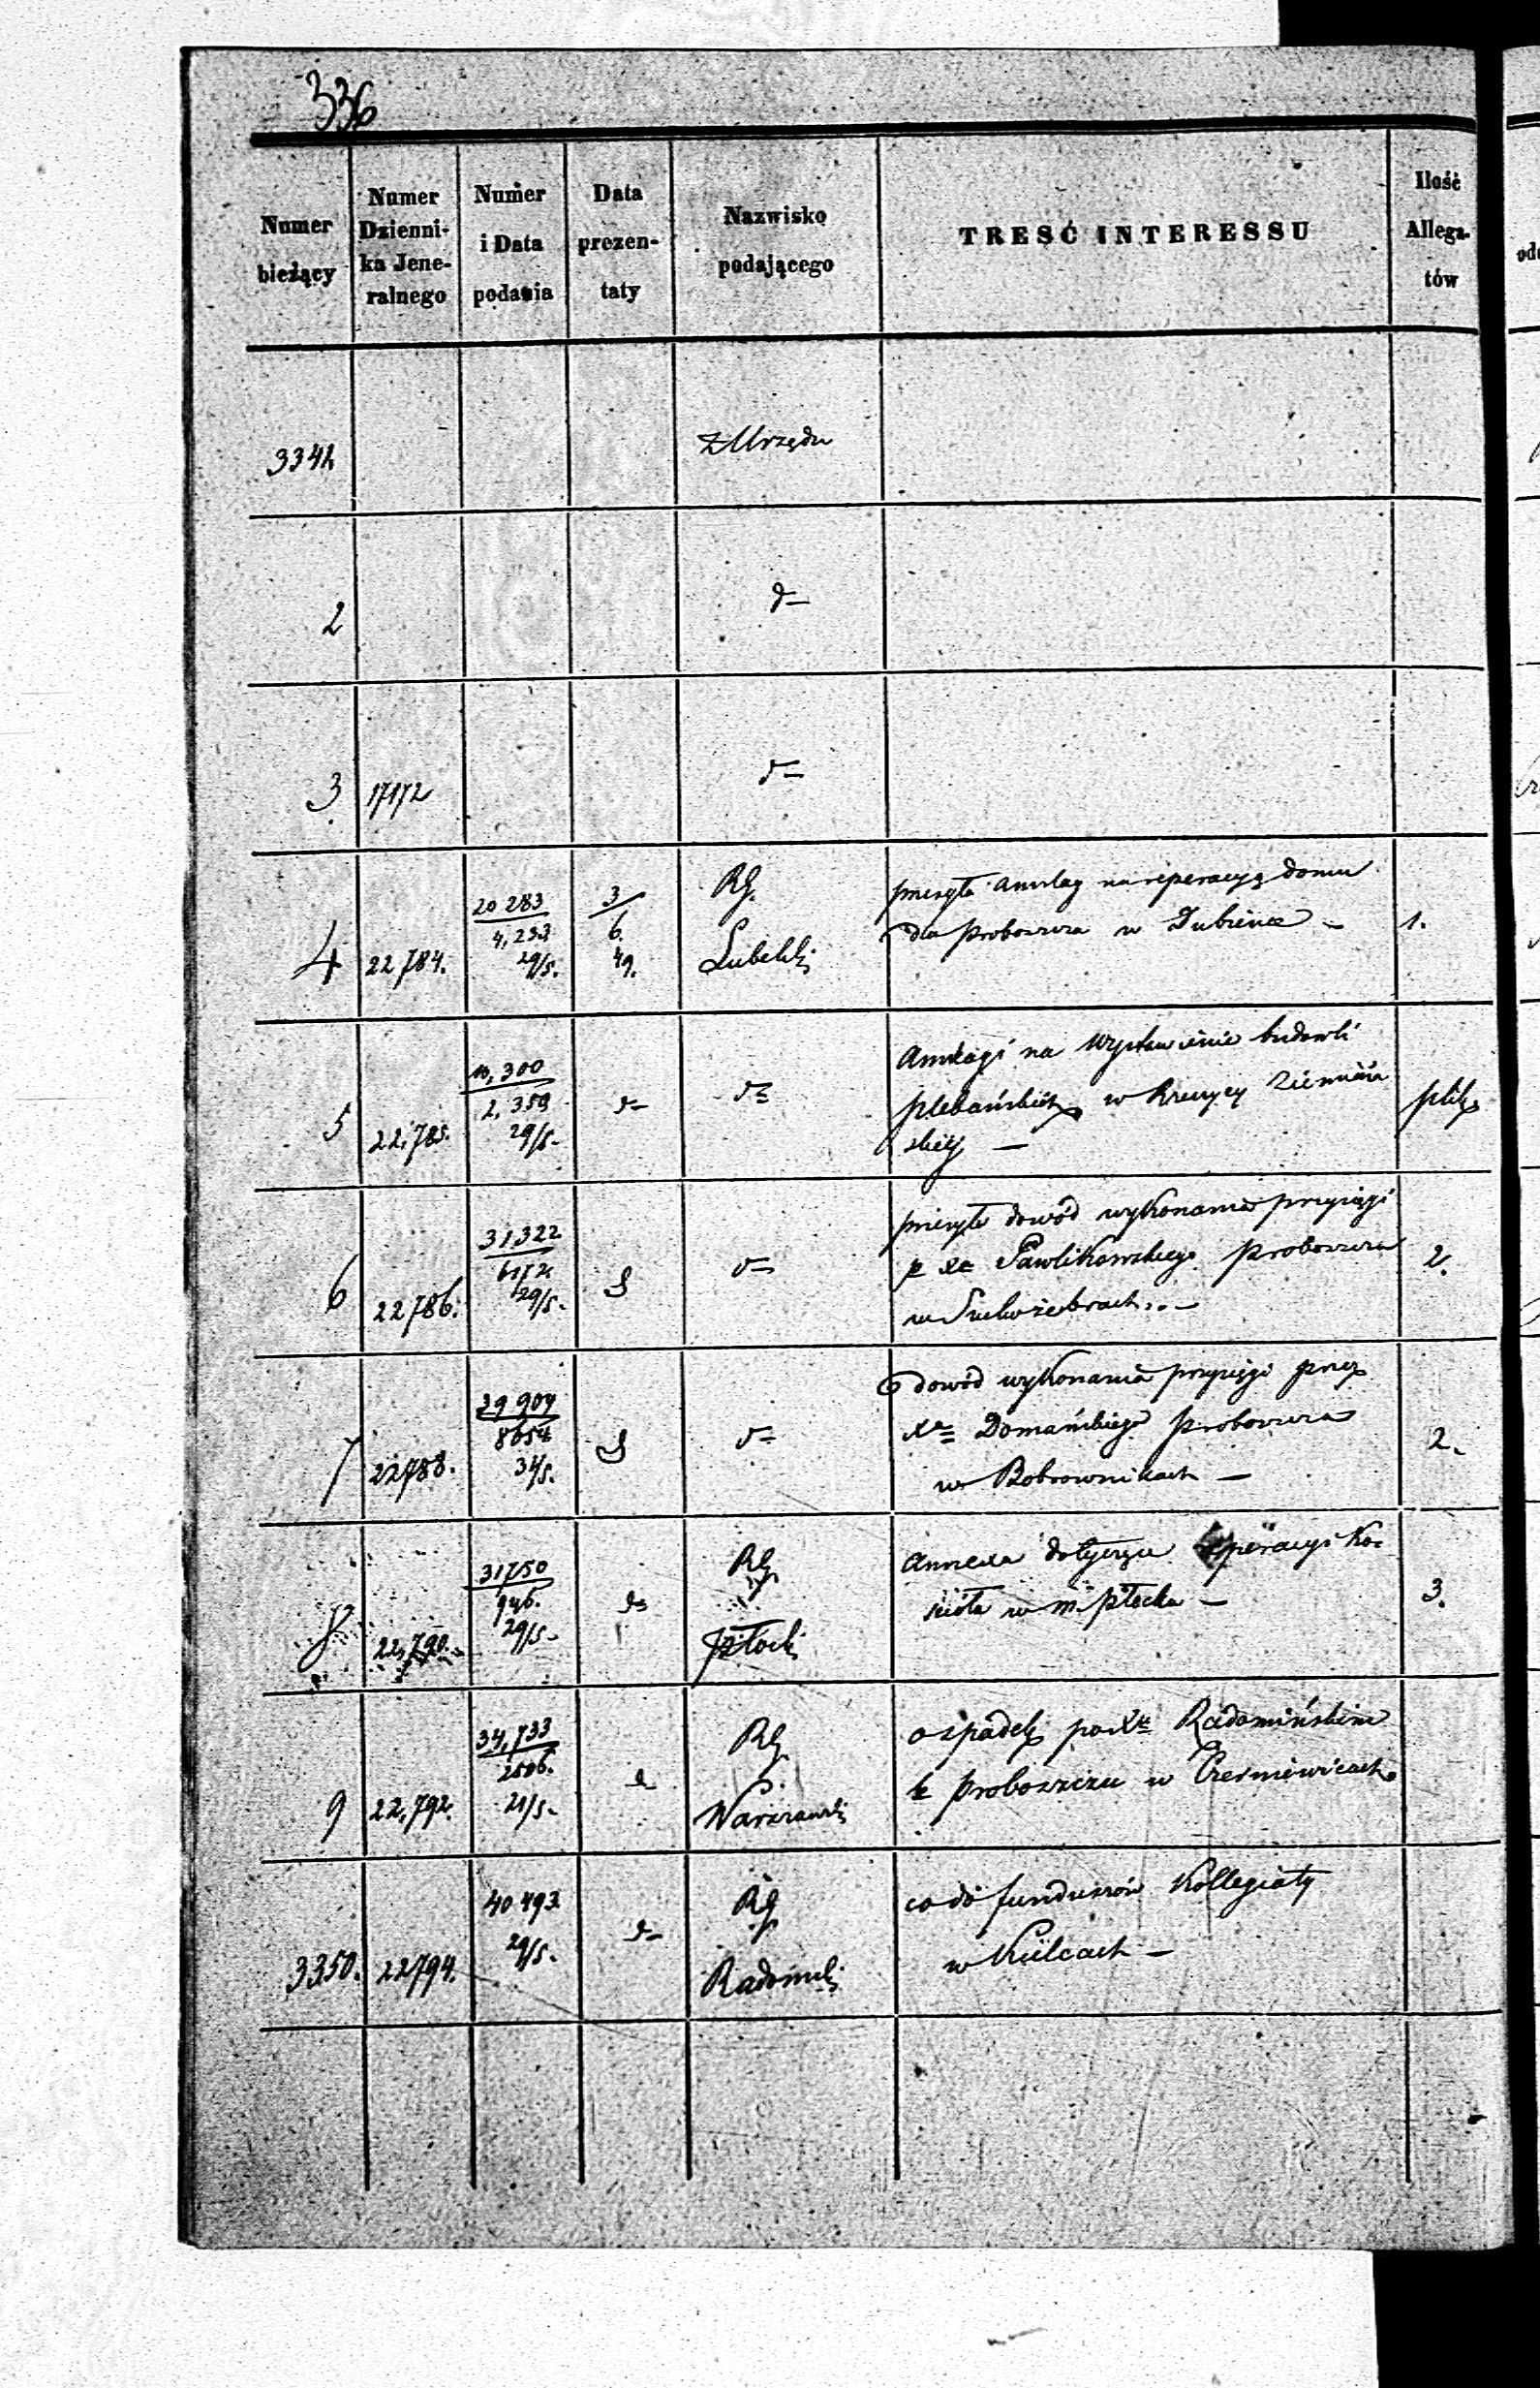 336
Numer bieżący
Numer Dzienni- ka Jene- ralnego
Numer i Data podania
Data prezen- taty
Nazwisko podającego
TREŚĆ INTERESSU
Ilość Allega- tów
3341
z Urzędu
2
d–
3 17172
d–
4 22784. 20 283
4,233
29/5.
3/6. 49.
RG.
Lubelski
przesyła anszlag na reperacyą domu
dla proboszcza w Dubience –
1.
5 22,785.
300
2,359
29/5–
d–
d–
Anszlagi na wystawienie budowli
plebańskich w
skiej –
plik
6 22786.
31322
6172
29/5–
d–
przesyła dowód wykonania przysięgi
p. Xa Pawlikowskiego proboszcza
w Suchożebrach. –
2.
7 22788.
39 904
8654
31/5.
d–
dowód wykonania przysięgi przez
Xa Domańskiego proboszcza
w Bobrownikach –
2.
8 22,790.
31750
946.
29/5–
d–
RG
Płocki
Annexa dotyczące reperacyi Ko-
ścioła w m. Płocku –
3.
9 22,792.
34,733
2506.
21/5–
d–
RG
Warszawski
o spadek po Xu Radomińskim
proboszczu w
3350. 22794.
40 493
29/5.
d–
RG
Radomski
co do funduszów Kollegiaty
w Kielcach –